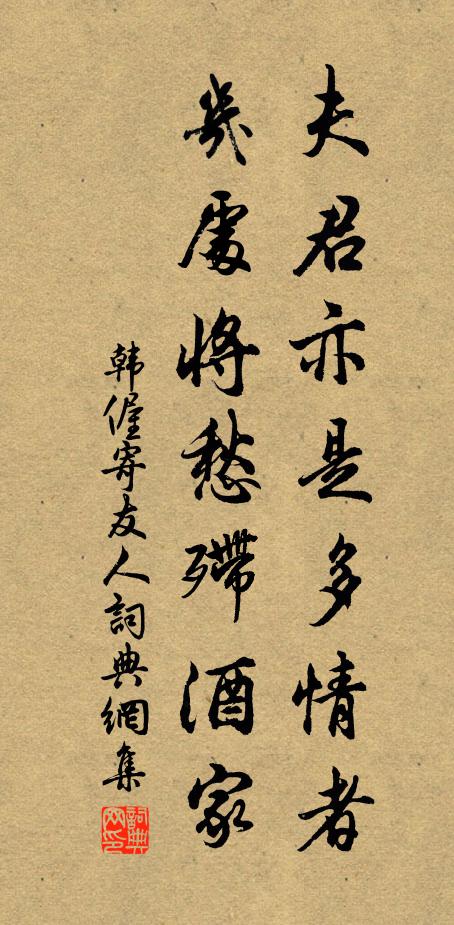 夫君亦是多情者
幾處將愁殢酒家
韓偓寄友人詞典網集
詞典網印